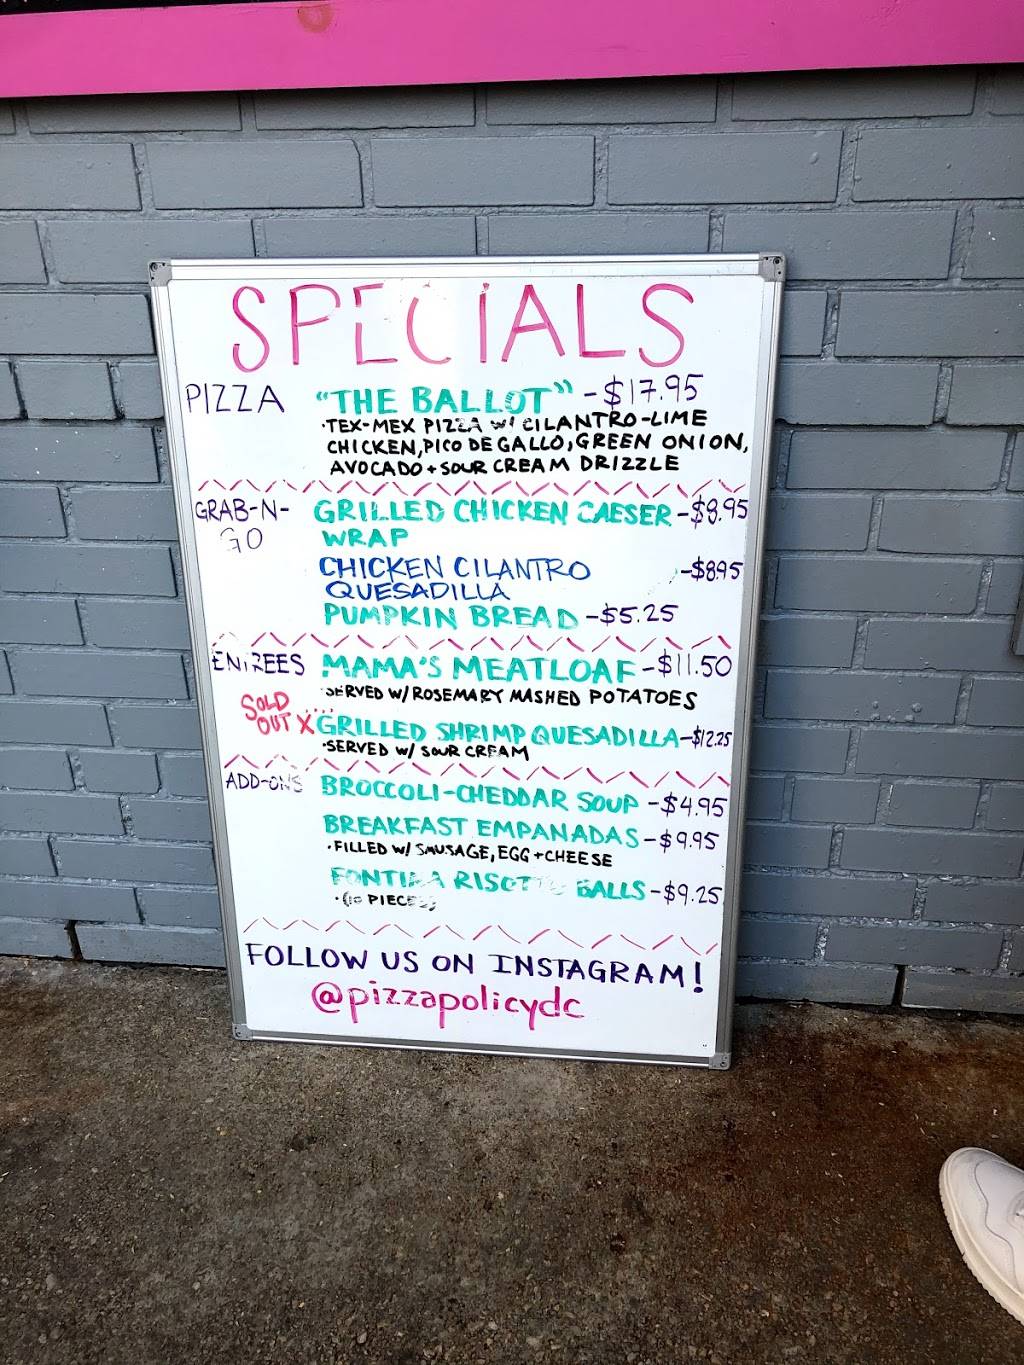 SPECIALS
PIZZA "THE BALLOT" -$17.95
·TEX-MEX PIZZA W/ CILANTRO-LIME
CHICKEN, PICO DE GALLO, GREEN ONION,
AVOCADO + SOUR CREAM DRIZZLE
GRAB-N- GRILLED CHICKEN CAESER -$8.95
GO WRAP
CHICKEN CILANTRO -$8.95
QUESADILLA
PUMPKIN BREAD -$5.25
ENTREES MAMA'S MEATLOAF -$11.50
·SERVED W/ ROSEMARY MASHED POTATOES
SOLD
OUT X GRILLED SHRIMP QUESADILLA -$12.25
·SERVED W/ SOUR CREAM
ADD-ONS BROCCOLI-CHEDDAR SOUP -$4.95
BREAKFAST EMPANADAS -$9.95
·FILLED W/ SAUSAGE, EGG + CHEESE
FONTINA RISOTTO BALLS -$9.25
·(10 PIECES)
FOLLOW US ON INSTAGRAM!
@pizzapolicydc